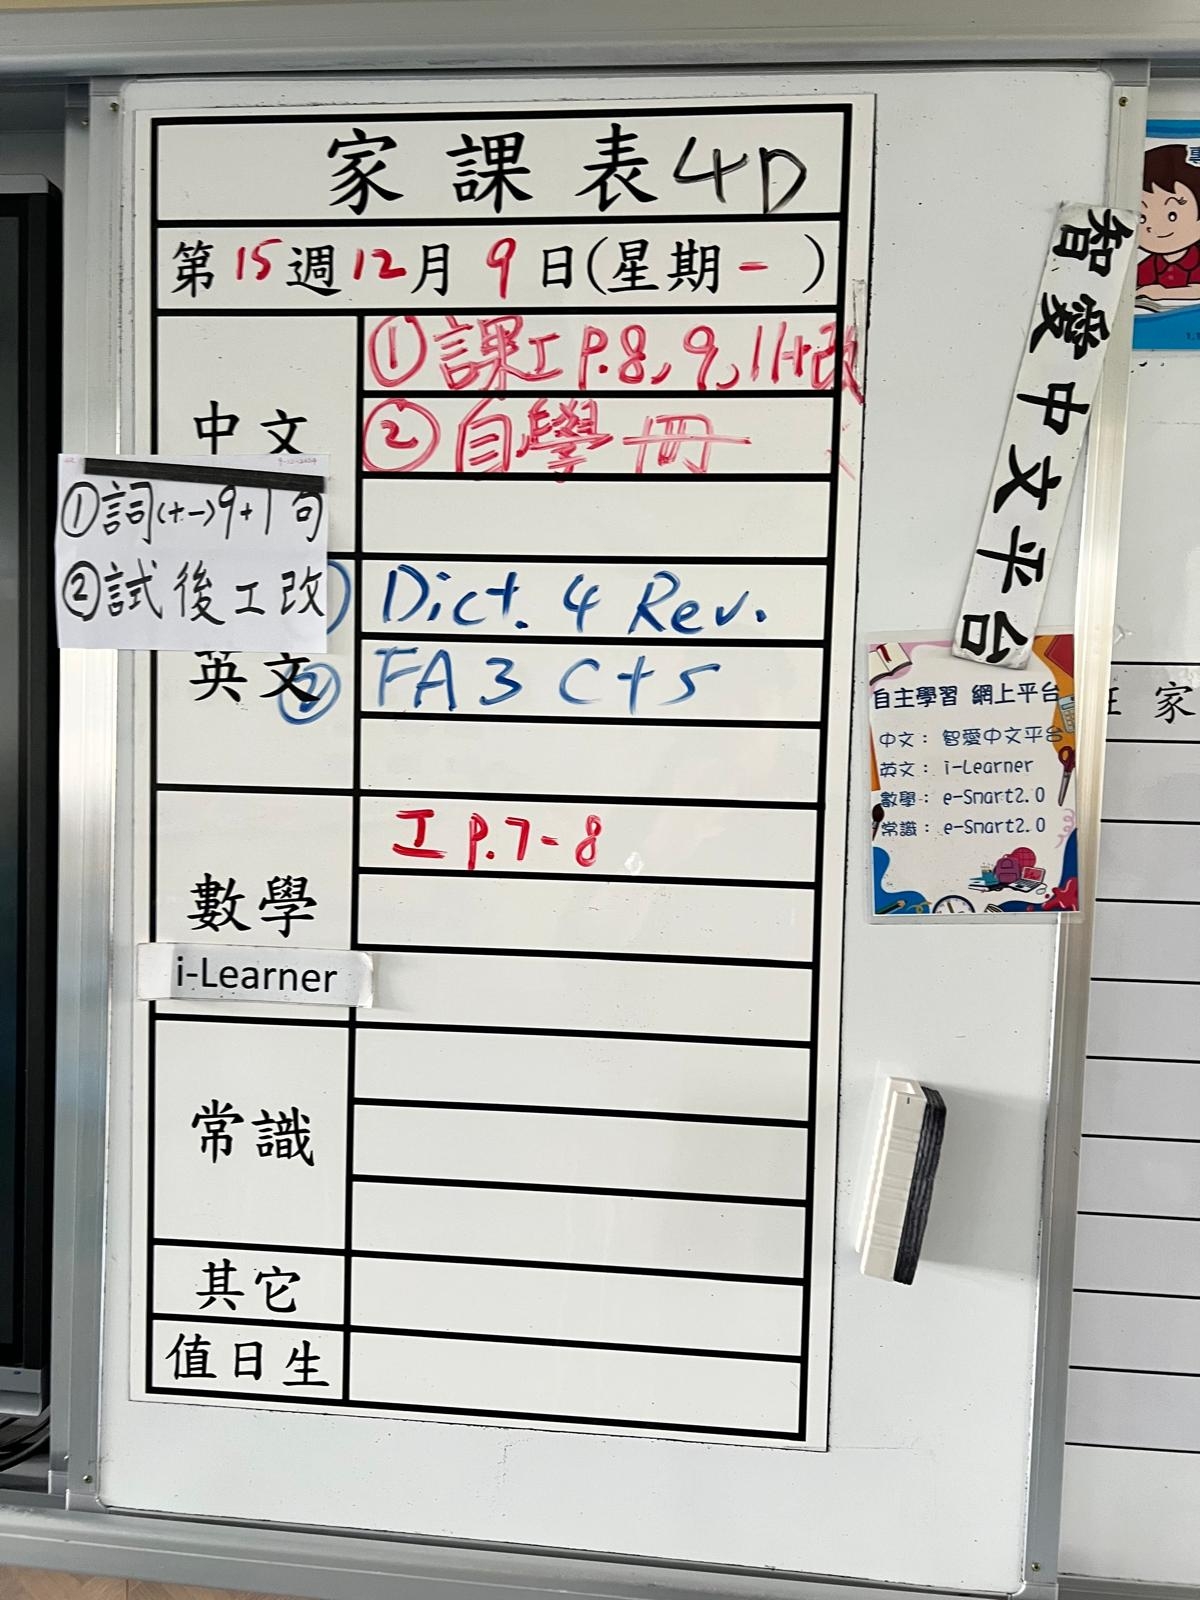 家課表 4D
第15週12月9日(星期一)
中文
①課工 P.8, 9, 11+改
②自學冊
9-12-2024
①詞(十一)9+1句
②試後工改
英文
Dict. 4 Rev.
② FA 3 C+S
數學
工 P.7-8
i-Learner
常識
其它
值日生
智愛中文平台
自主學習 網上平台
中文： 智愛中文平台
英文： i-Learner
數學： e-Smart2.0
常識： e-Smart2.0
家